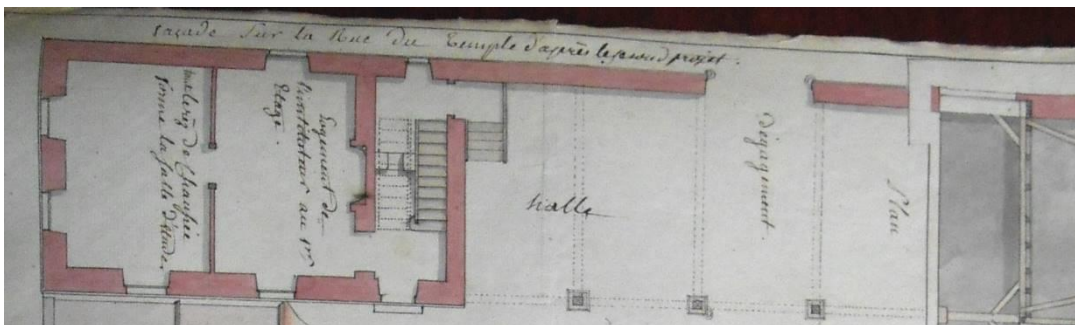 façade Sur la Rue du Temple d'après le second projet.
au rez de Chaussée
forme la Salle d'étude
Logement de
l'instituteur au 1er
Etage.
halle
dégagement.
Plan